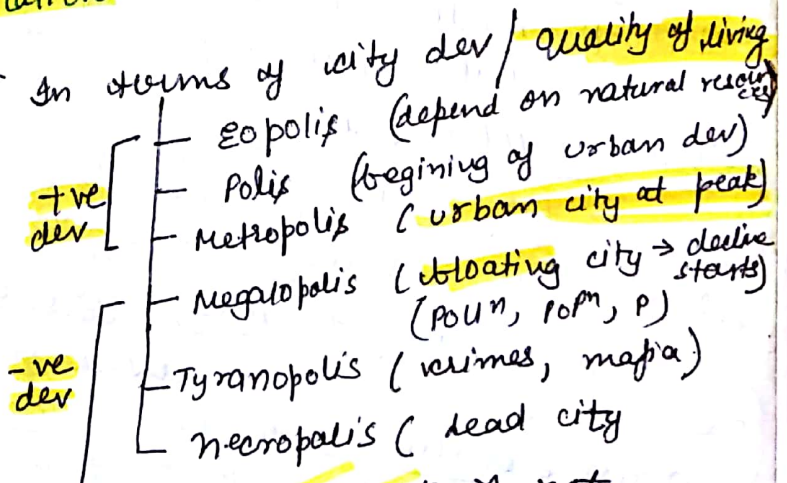 In terms of city dev / quality of living
Eopolis (depend on natural resources)
Polis (begining of urban dev)
+ve dev
Metropolis (urban city at peak)
Megalopolis (bloating city → decline starts)
(Poluⁿ, popⁿ, P)
-ve dev
Tyranopolis (crimes, mafia)
Necropolis ( dead city